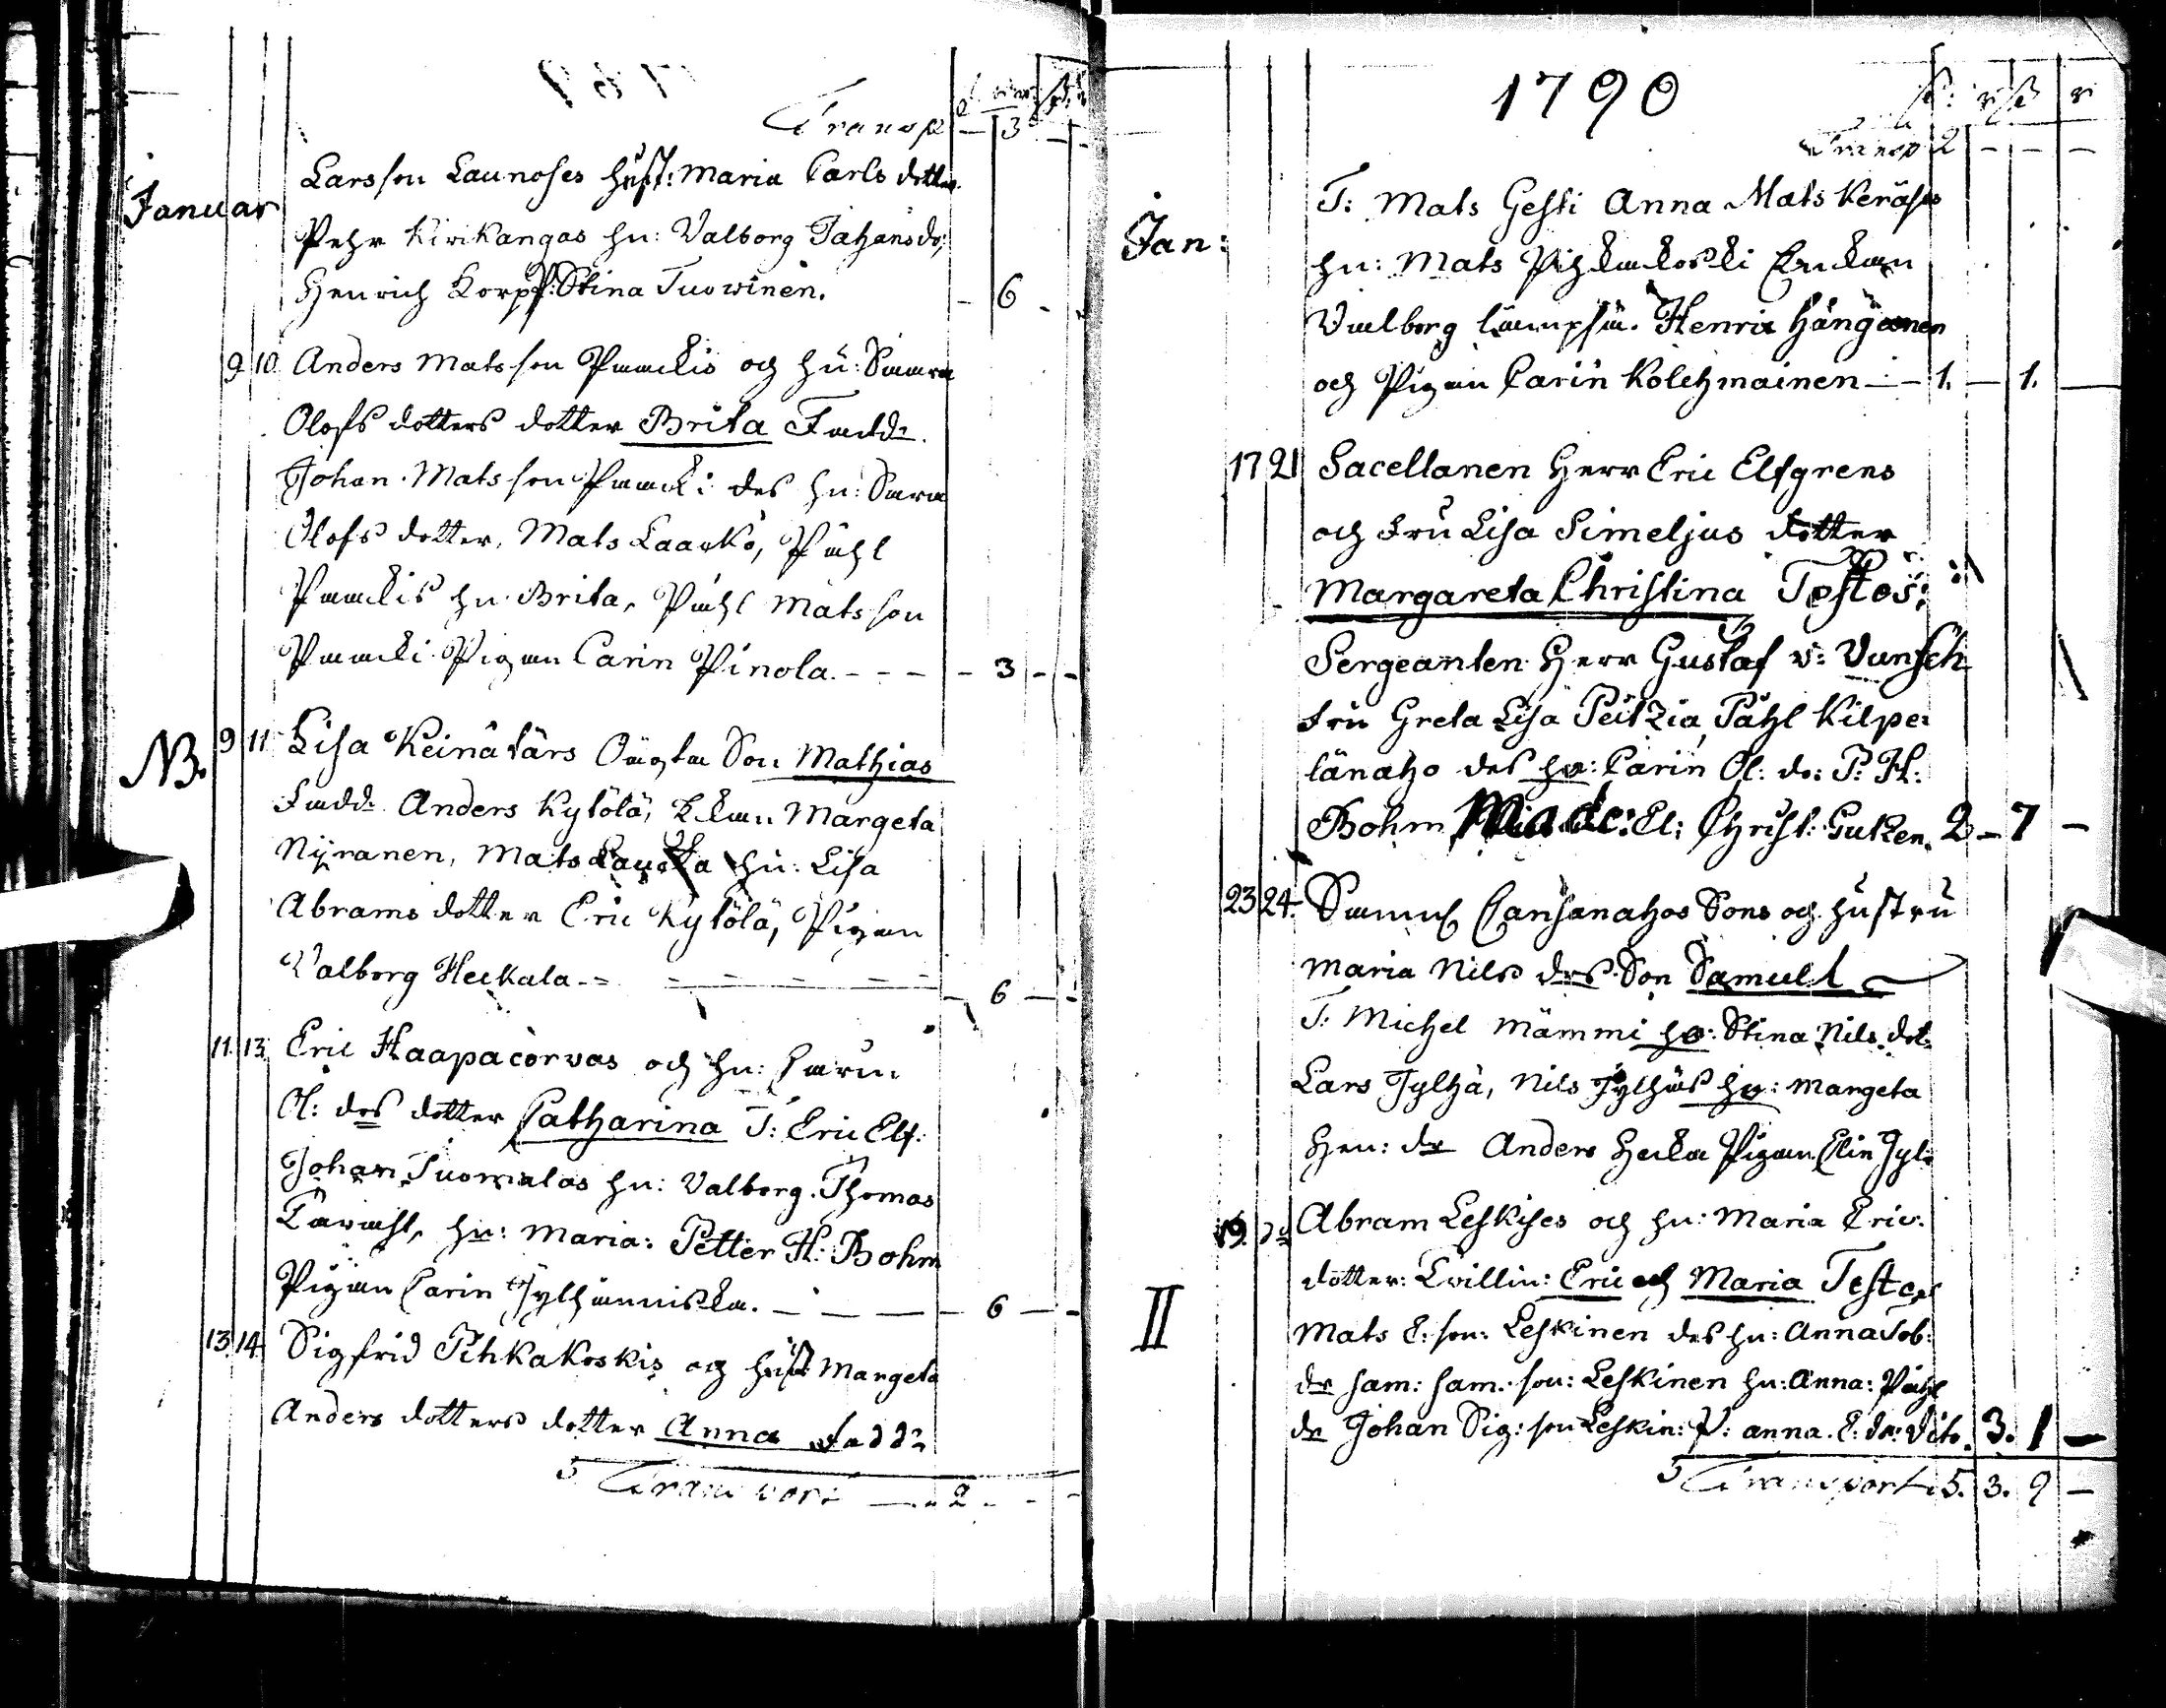 Transp — 3 — —
Januar
Larsson Launoses hust: Maria Carls dotter
Pehr Kirikangas hu: Valborg Johans do:
Henrich Korp P: Stina Tuowinen. — 6 —
9 10 Anders Matsson Paackis och hu: Saara
Olofs dotters dotter Brita Fadd:
Johan Matsson Paacki des hu: Sara
Olofs dotter, Mats Laacko, Påhl
Paackis hu. Brita, Påhl Matsson
Paacki Pigan Carin Pinola. — — — — 3 — —
NB. 9 11 Lisa Keinätärs Oägta Son Mathias
Fadd: Anders Kytölä, Enkan Margeta
Nyranen, Mats hu: Lisa
Abrams dotter Eric Kytölä, Pigan
Valborg Heckala — 6 — —
11 13 Eric Haapacorvas och hu: Carin
Ol: des dotter Catharina T: Eric Elf:
Johan Tuomalas hu: Valborg. Thomas
hu: Maria: Petter H: Bohm
Pigan Carin Jylhänniska. — — — 6 — —
13 14 Sigfrid Pihkakoskis och hust Margeta
Anders dotters dotter Anna Fadd:
Transport — 2 — — —
1790
Transp 2 — — —
Jan:
T: Mats Gesti Anna Mats Keräses
hu: Mats Pihkakoski Enkan
Valborg Henric Hängänen
och Pigan Carin Kolehmainen — 1. — 1. —
17 21 Sacellanen Herr Eric Elfgrens
och Fru Lisa Simeljus dotter
Margareta Christina Testes:
Sergeanten Herr Gustaf v: Vunsch
Fru Greta Lisa Peitzia, Påhl Kilpe:
länaho des hu: Carin Ol: do: P: H:
Bohm El: Christ: Guken. 2 — 7 —
23 24. Samuel Cansanahos Sons och hustru
Maria Nils des Son Samuel
T: Michel Mämmi hu: Stina Nils dot
Lars Jylhä, Nils Jylhäs hu: Margeta
Hen: dr Anders Hecka Pigan Elin Jyl:
19. do Abram Leskises och hu: Maria Eric:
II dotter: Tvillin: Eric och Maria Testes
Mats E: son: Leskinen des hu: Anna Tob:
dr Sam: Sam: son: Leskinen hu: Anna: Påhl
dr Johan Sig: son Leskin: P: anna. E: dr: dito. 3. 1 —
Transport 5. 3. 9 —